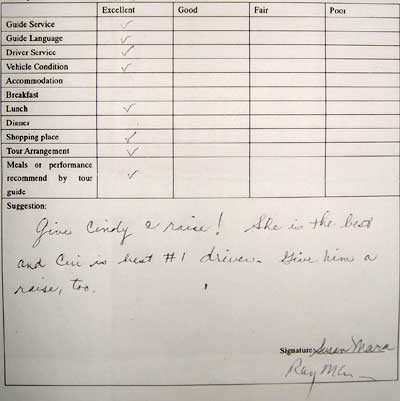 Excellent Good Fair Poor
Guide Service ✓
Guide Language ✓
Driver Service ✓
Vehicle Condition ✓
Accommodation
Breakfast
Lunch ✓
Dinner
Shopping place ✓
Tour Arrangement ✓
Meals or performance
recommend by tour ✓
guide
Suggestion:
Give Cindy a raise! She is the best
and Cui is best #1 driver. Give him a
raise, too.
Signature: Susan Mara
Ray